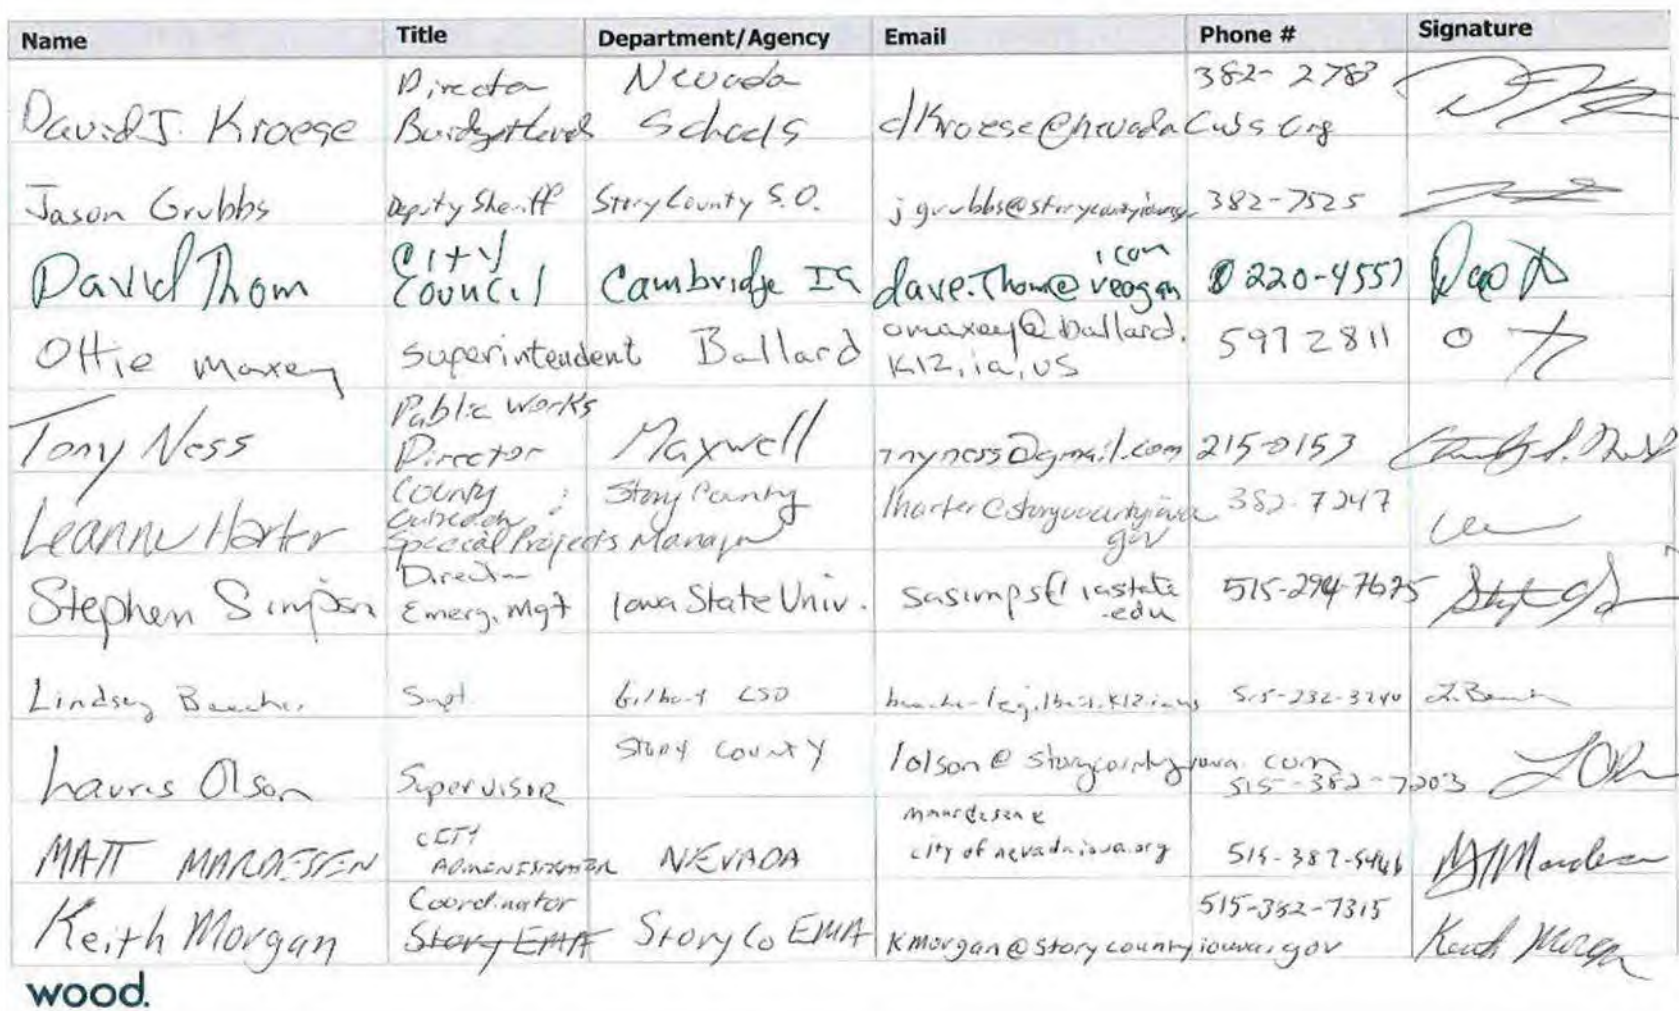 Name Title Department/Agency Email Phone # Signature
David J. Kroese Director Nevada Schools dkroese@nevadacubs.org 382-2783
Jason Grubbs Deputy Sheriff Story County S.O. 382-7525
David Thom City Council Cambridge IA 220-4557
Ottie Maxey Superintendent Ballard omaxey@ballard.k12.ia.us 597 2811
Tony Ness Public Works Director Maxwell tnyness@gmail.com 215-0153
Leanne Harter County Outreach & Special Projects Manager Story County lharter@storycountyiowa.gov 382-7247
Stephen Simpson Director Emerg. Mgt Iowa State Univ. iastate.edu
Lindsey Beecher Supt. Gilbert CSD 515-232-3740
Lauris Olson Supervisor Story County lolson@storycountyiowa.com 515-382-7203
MATT MARDESSEN CITY ADMINISTRATOR NEVADA cityofnevadaiowa.org
Keith Morgan Coordinator Story EMA Story Co EMA kmorgan@storycountyiowa.gov 515-382-7315 Keith Morgan
wood.